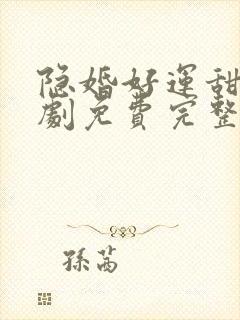 隐婚好運甜
劇免費完整
孫茜